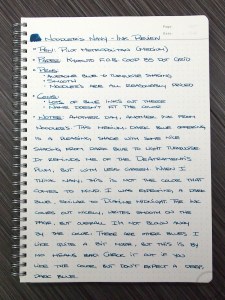 Noodler's Navy - Ink Review
• Pen: Pilot Metropolitan (Medium)
• Paper: Kyokuto F.O.B. COOP B5 Dot Grid
• Pros:
- Awesome blue to turquoise shading
- Smooth
- Noodler's are all reasonably priced
• Cons:
- Lots of blue inks out there
- Name doesn't fit the color
• Notes: Another day, another ink from
Noodler's. This medium-dark blue offering
is a pleasing shade with some nice
shading from dark blue to light turquoise.
It reminds me of the De Atramentis
Plum, but with less sheen. When I
think navy, this is not the color that
comes to mind. I was expecting a dark
blue, similar to Diamine Midnight. The ink
comes out nicely, writes smooth on the
page, but overall I'm not blown away
by the color. There are other blues I
like quite a bit more, but this is by
no means bad. Check it out if you
like this color, but don't expect a deep,
dark blue.